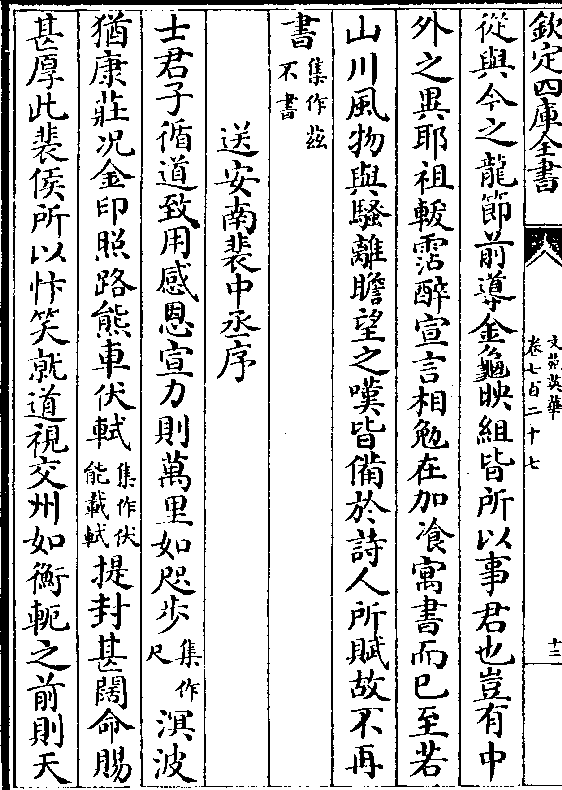 欽定四庫全書
文苑英華
卷七百二十七
十三
從與今之龍節前導金龜映組皆所以事君也豈有中
外之異耶祖軷霑醉宣言相勉在加飡寓書而已至若
山川風物與騷離瞻望之嘆皆備於詩人所賦故不再
書集作兹不書
送安南裴中丞序
士君子循道致用感恩宣力則萬里如咫步集作尺溟波
猶康莊况金印照路熊車伏軾集作伏能載軾提封甚闊命賜
甚厚此裴侯所以忭笑就道視交州如衡軛之前則天